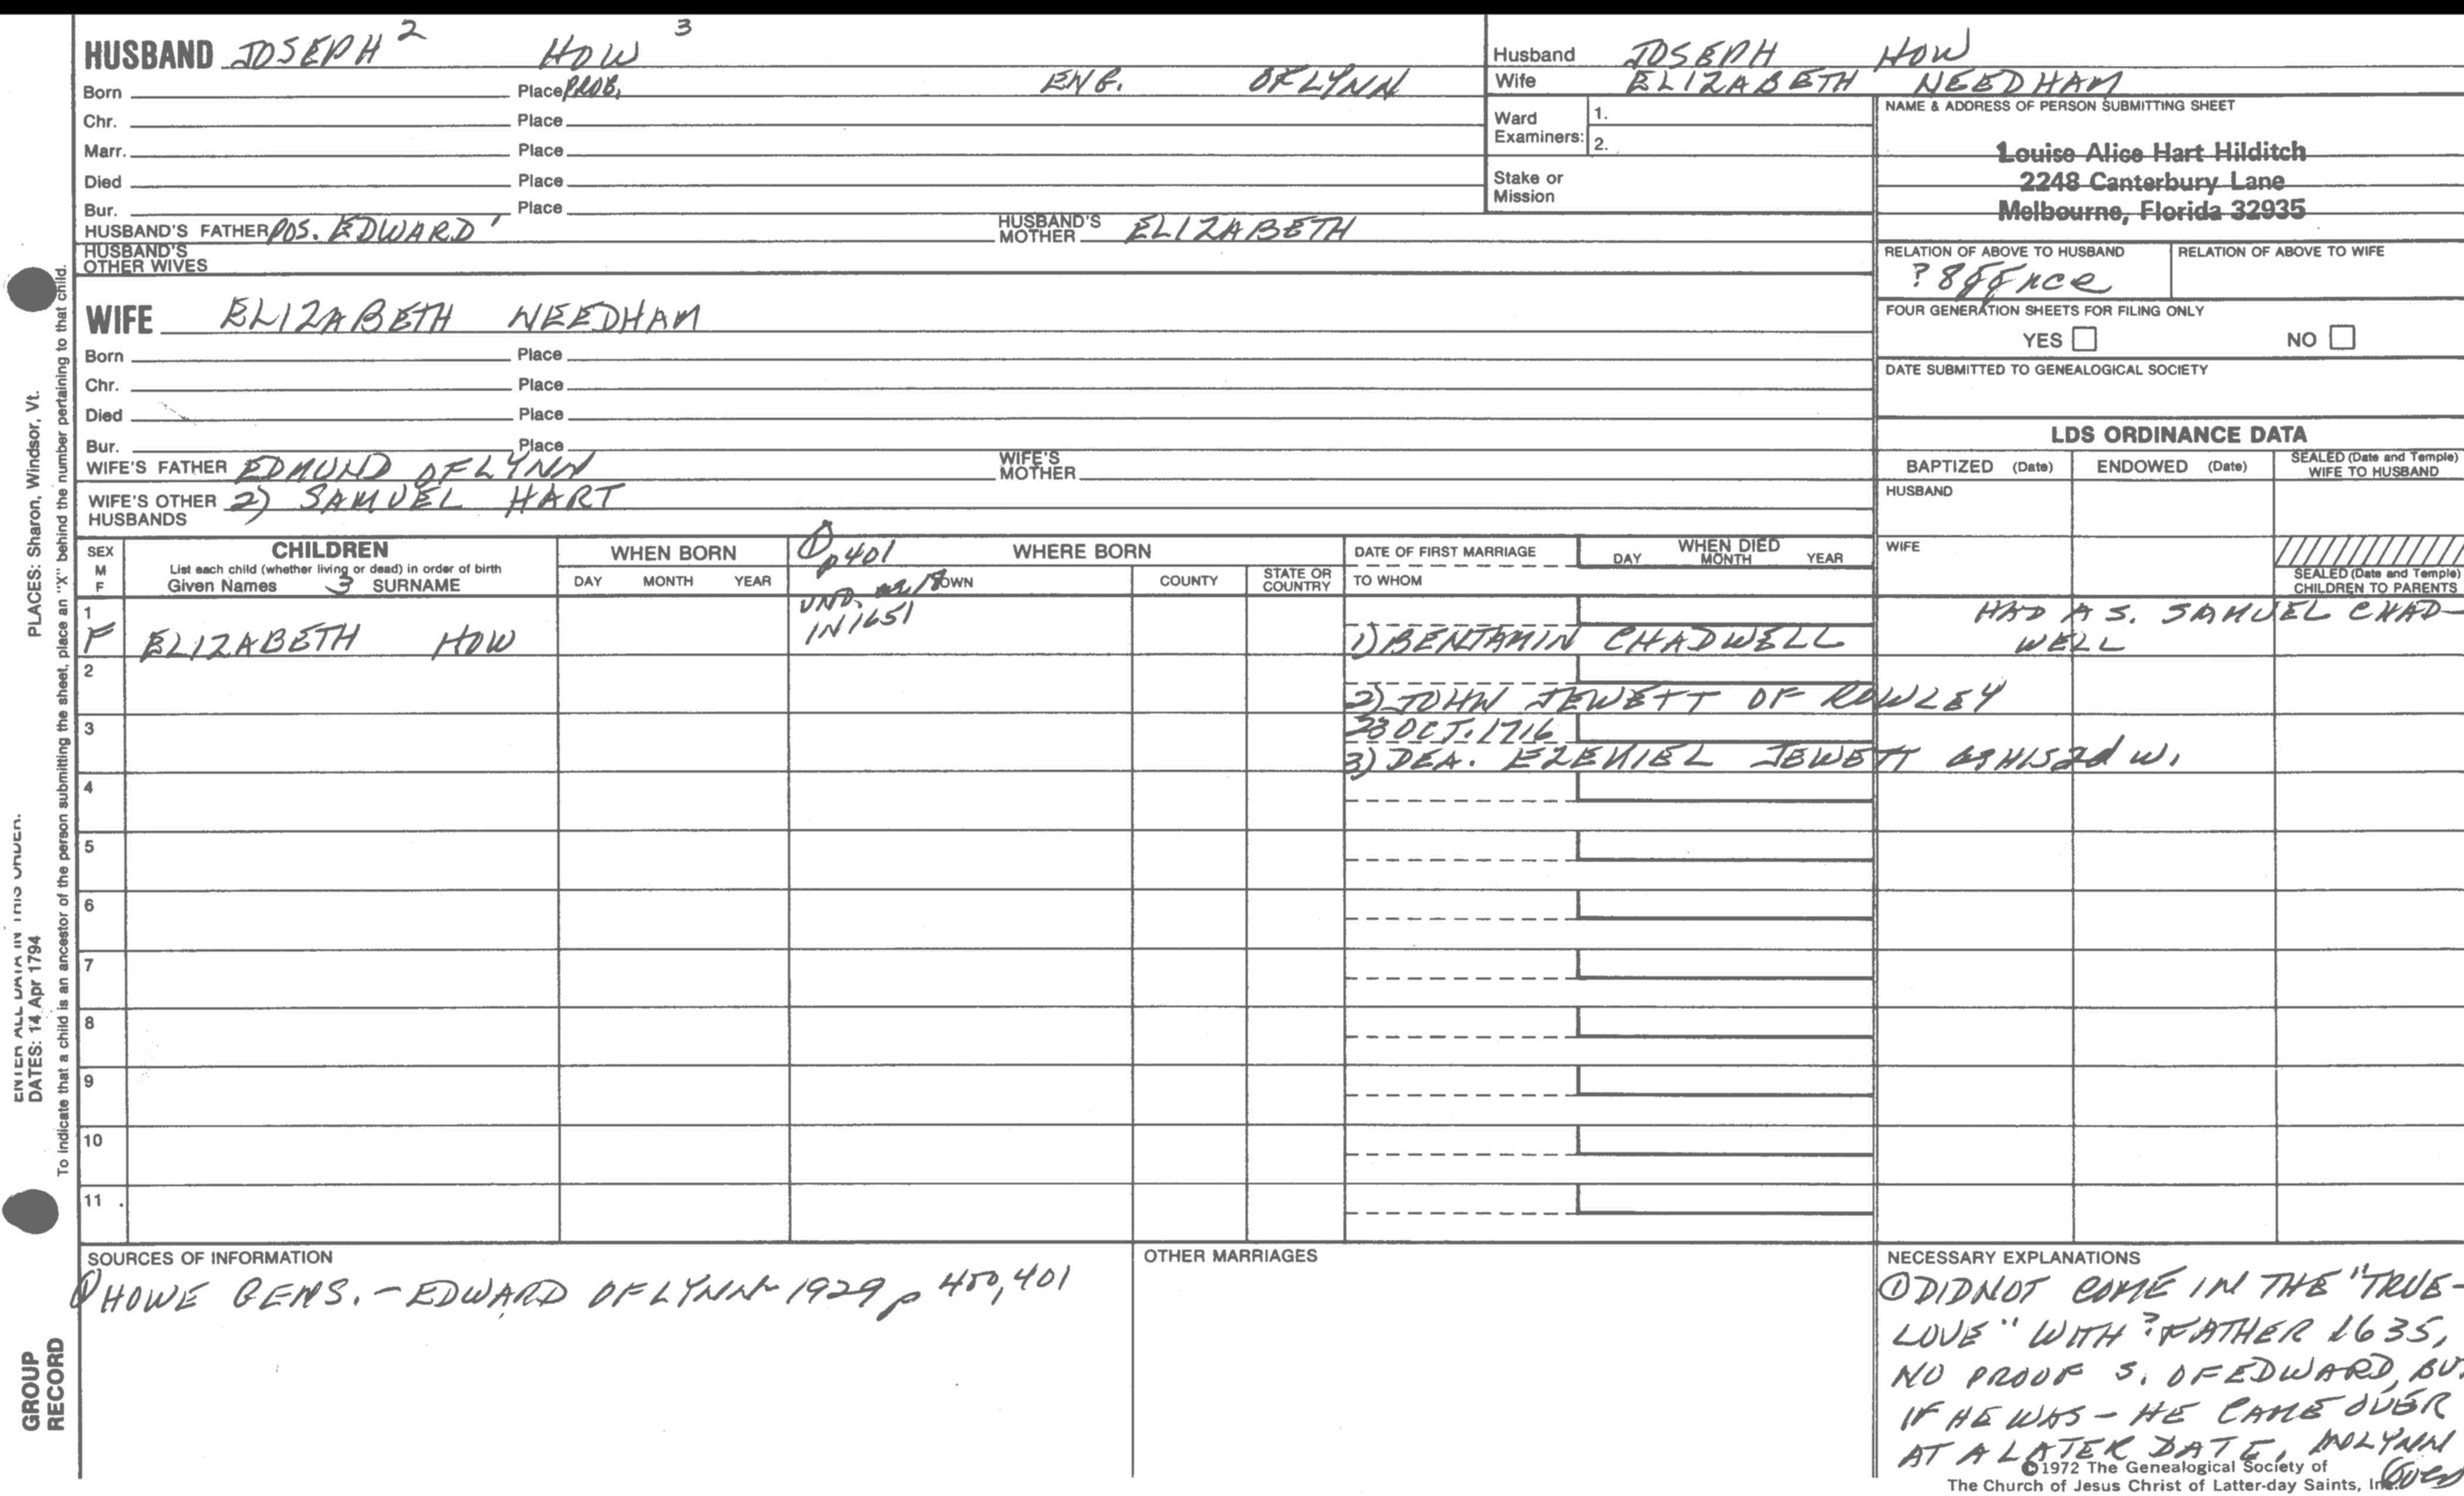 HUSBAND JOSEPH 2 HOW 3
Born Place PROB. ENG. OF LYNN
Chr. Place
Marr. Place
Died Place
Bur. Place
HUSBAND'S FATHER POS. EDWARD 1 HUSBAND'S MOTHER ELIZABETH
HUSBAND'S OTHER WIVES
Husband JOSEPH HOW
Wife ELIZABETH NEEDHAM
Ward Examiners: 1.
2.
Stake or Mission
NAME & ADDRESS OF PERSON SUBMITTING SHEET
Louise Alice Hart Hilditch
2248 Canterbury Lane
Melbourne, Florida 32935
RELATION OF ABOVE TO HUSBAND RELATION OF ABOVE TO WIFE
? 8
FOUR GENERATION SHEETS FOR FILING ONLY
YES NO
DATE SUBMITTED TO GENEALOGICAL SOCIETY
WIFE ELIZABETH NEEDHAM
Born Place
Chr. Place
Died Place
Bur. Place
WIFE'S FATHER EDMUND OF LYNN WIFE'S MOTHER
WIFE'S OTHER HUSBANDS 2) SAMUEL HART
LDS ORDINANCE DATA
BAPTIZED (Date) ENDOWED (Date) SEALED (Date and Temple) WIFE TO HUSBAND
HUSBAND
WIFE
SEALED (Date and Temple) CHILDREN TO PARENTS
SEX M F
CHILDREN
List each child (whether living or dead) in order of birth
Given Names 3 SURNAME
WHEN BORN
DAY MONTH YEAR
① p401 WHERE BORN
TOWN COUNTY STATE OR COUNTRY
UND. 18
IN 1651
DATE OF FIRST MARRIAGE
TO WHOM
WHEN DIED
DAY MONTH YEAR
1
F ELIZABETH HOW 1) BENJAMIN CHADWELL
HAD A S. SAMUEL CHAD-
WELL
2
2) JOHN JEWETT OF ROWLEY
3
23 OCT. 1716
3) DEA. EZEKIEL JEWETT as HIS 2d W.
4
5
6
7
8
9
10
11
SOURCES OF INFORMATION
① HOWE GENS. - EDWARD OF LYNN 1929 p 400, 401
OTHER MARRIAGES
NECESSARY EXPLANATIONS
① DID NOT COME IN THE "TRUE-
LOVE" WITH ? FATHER 1635,
NO PROOF S. OF EDWARD, BU
IF HE WAS - HE CAME OVER
AT A LATER DATE, LYNN
(over
©1972 The Genealogical Society of
The Church of Jesus Christ of Latter-day Saints, Inc.
PLACES: Sharon, Windsor, Vt.
ENTER ALL DATA IN THIS ORDER.
DATES: 14 Apr 1794
To indicate that a child is an ancestor of the person submitting the sheet, place an "X" behind the number pertaining to that child.
GROUP
RECORD